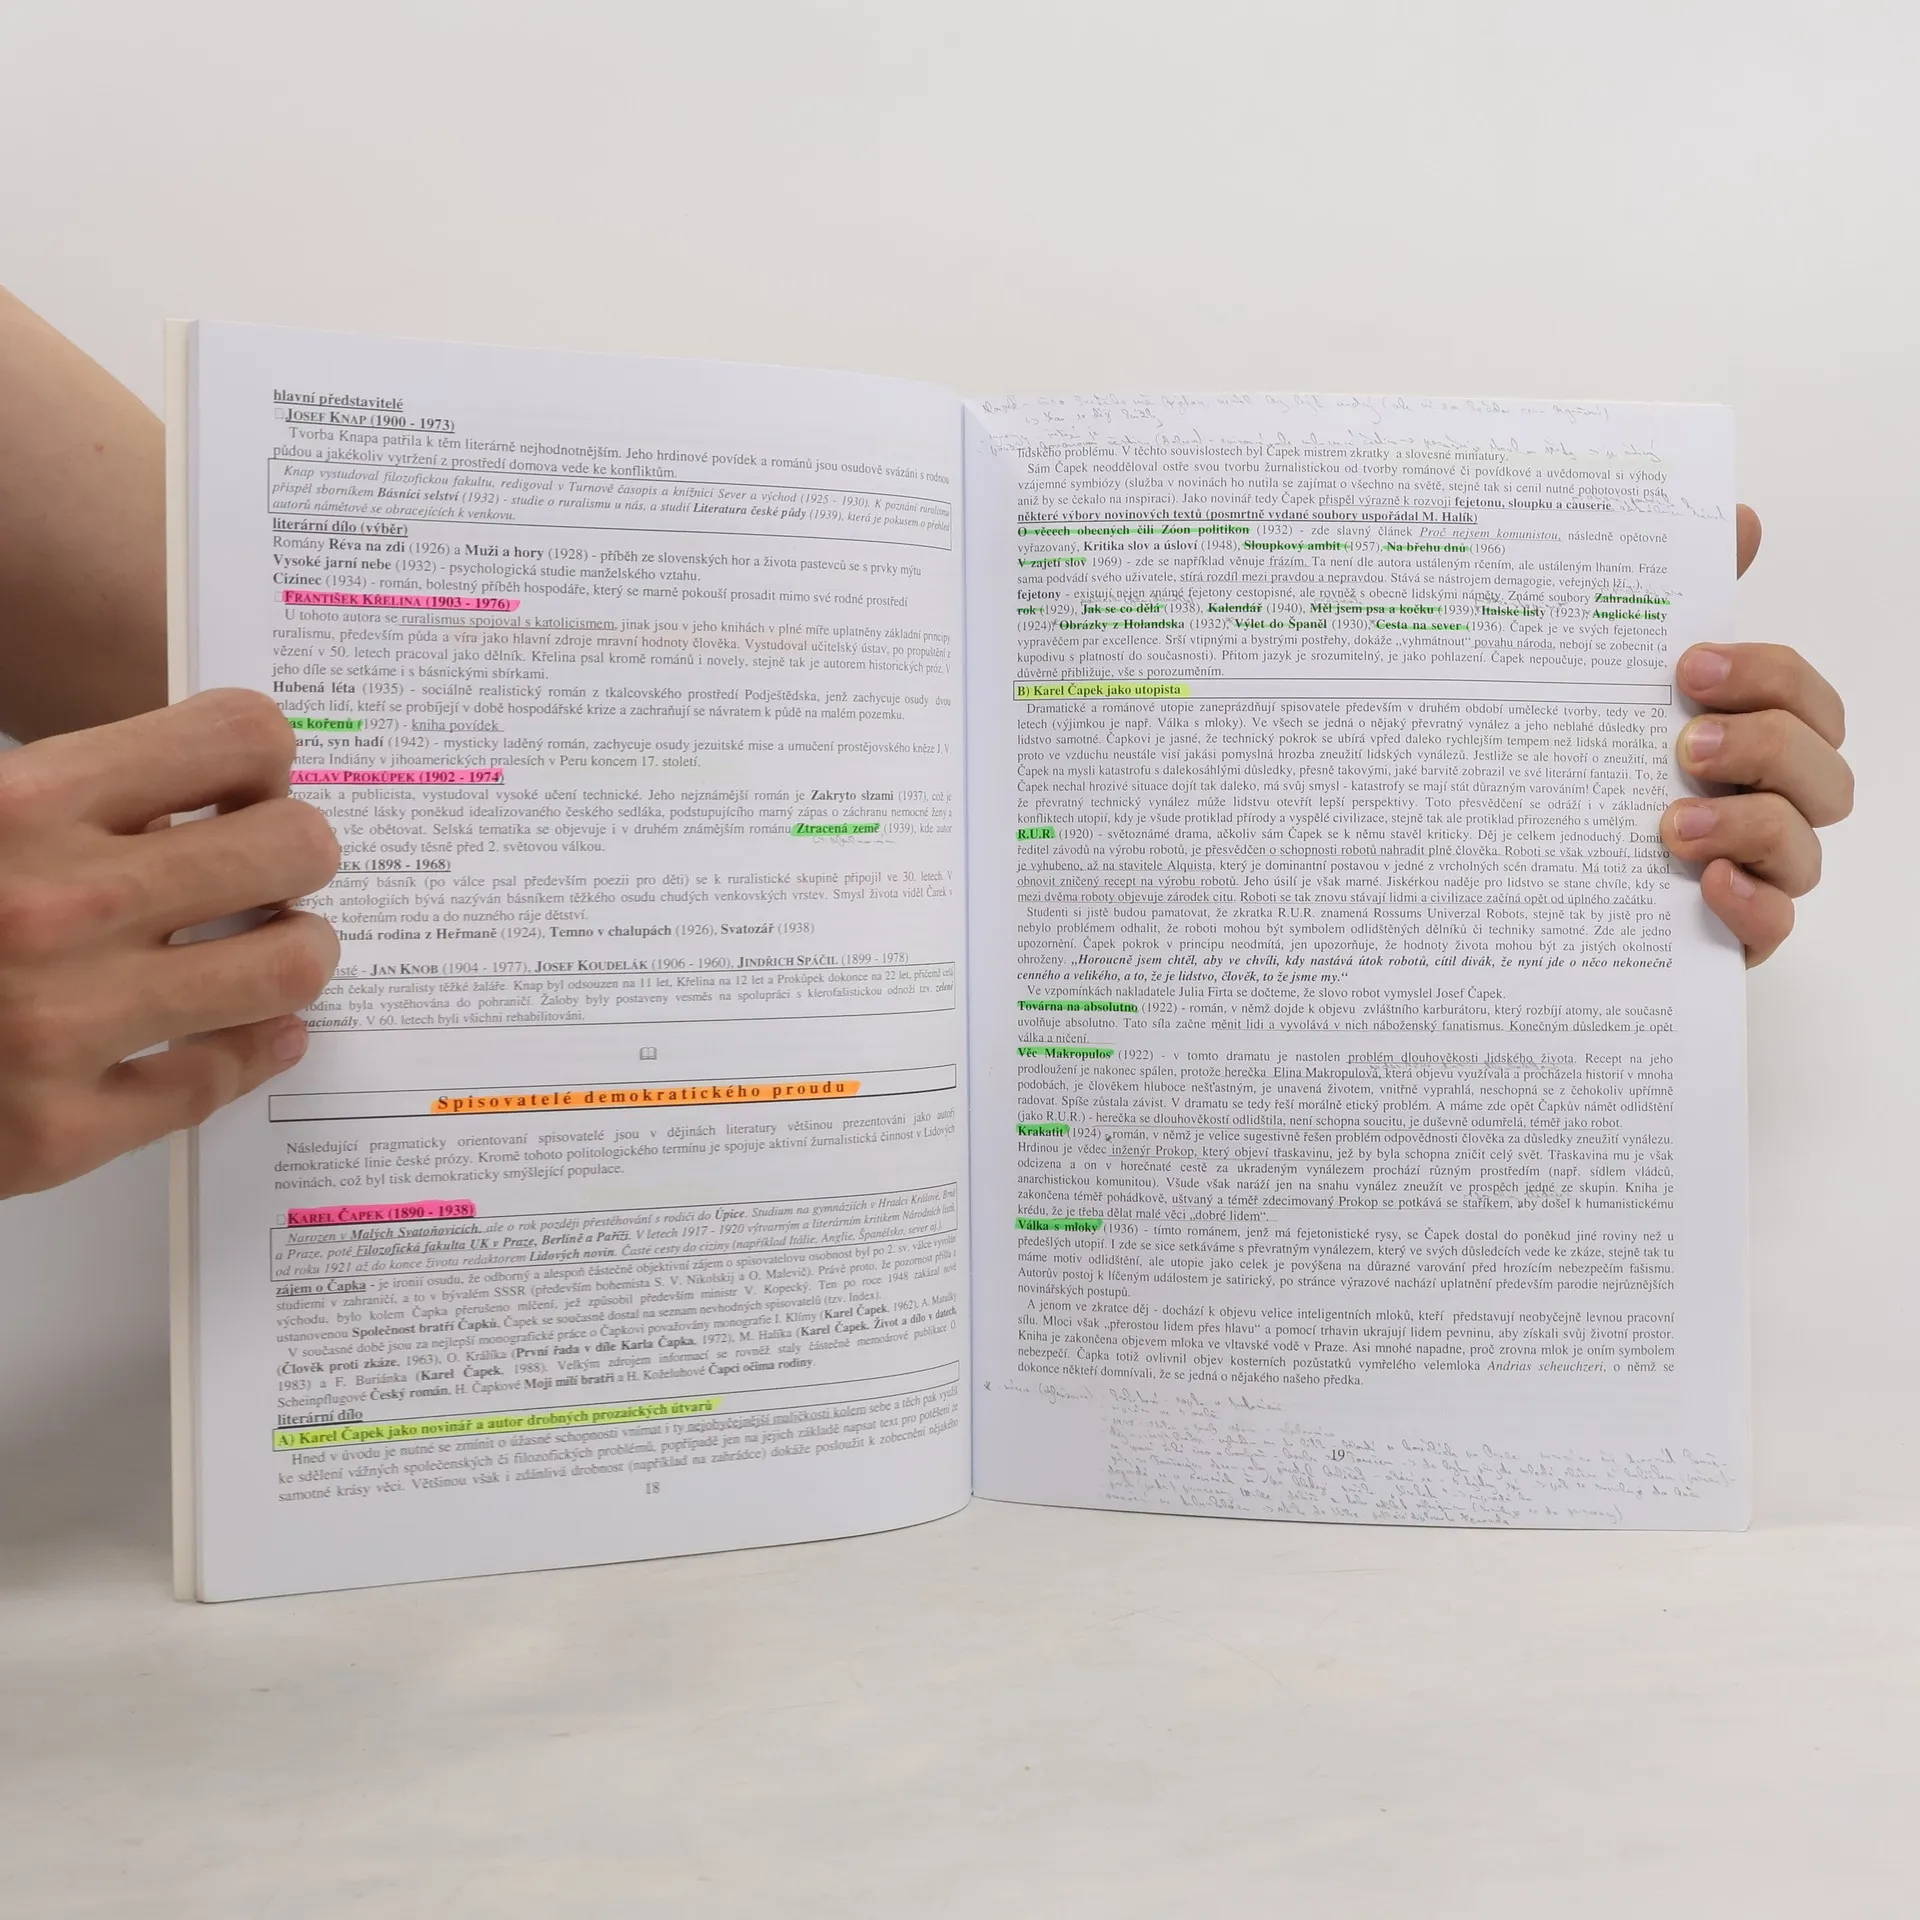 hlavní představitelé
JOSEF KNAP (1900 - 1973)
Tvorba Knapa patřila k těm literárně nejhodnotnějším. Jeho hrdinové povídek a románů jsou osudově svázáni s rodnou
půdou a jakékoliv vytržení z prostředí domova vede ke konfliktům.
Knap vystudoval filozofickou fakultu, redigoval v Turnově časopis a knižnici Sever a východ (1925 - 1930). K poznání ruralismu
přispěl sborníkem Básníci selství (1932) - studie o ruralismu u nás, a studií Literatura české půdy (1939), která je pokusem o přehled
autorů námětově se obracejících k venkovu.
literární dílo (výběr)
Romány Réva na zdi (1926) a Muži a hory (1928) - příběh ze slovenských hor a života pastevců se s prvky mýtu
Vysoké jarní nebe (1932) - psychologická studie manželského vztahu.
Cizinec (1934) - román, bolestný příběh hospodáře, který se marně pokouší prosadit mimo své rodné prostředí
FRANTIŠEK KŘELINA (1903 - 1976)
U tohoto autora se ruralismus spojoval s katolicismem, jinak jsou v jeho knihách v plné míře uplatněny základní principy
ruralismu, především půda a víra jako hlavní zdroje mravní hodnoty člověka. Vystudoval učitelský ústav, po propuštění z
vězení v 50. letech pracoval jako dělník. Křelina psal kromě románů i novely, stejně tak je autorem historických próz. V
jeho díle se setkáme i s básnickými sbírkami.
Hubená léta (1935) - sociálně realistický román z tkalcovského prostředí Podještědska, jenž zachycuje osudy dvou
mladých lidí, kteří se probíjejí v době hospodářské krize a zachraňují se návratem k půdě na malém pozemku.
as kořenů (1927) - kniha povídek
arú, syn hadí (1942) - mysticky laděný román, zachycuje osudy jezuitské mise a umučení prostějovského kněze J. V.
ntera Indiány v jihoamerických pralesích v Peru koncem 17. století.
VÁCLAV PROKŮPEK (1902 - 1974)
Prozaik a publicista, vystudoval vysoké učení technické. Jeho nejznámější román je Zakryto slzami (1937), což je
bolestné lásky poněkud idealizovaného českého sedláka, podstupujícího marný zápas o záchranu nemocné ženy a
vše obětovat. Selská tematika se objevuje i v druhém známějším románu Ztracená země (1939), kde autor
gické osudy těsně před 2. světovou válkou.
EK (1898 - 1968)
známý básník (po válce psal především poezii pro děti) se k ruralistické skupině připojil ve 30. letech. V
erých antologiích bývá nazýván básníkem těžkého osudu chudých venkovských vrstev. Smysl života viděl Čarek v
ke kořenům rodu a do nuzného ráje dětství.
hudá rodina z Heřmaně (1924), Temno v chalupách (1926), Svatozář (1938)
isté - JAN KNOB (1904 - 1977), JOSEF KOUDELÁK (1906 - 1960), JINDŘICH SPÁČIL (1899 - 1978)
ech čekaly ruralisty těžké žaláře. Knap byl odsouzen na 11 let, Křelina na 12 let a Prokůpek dokonce na 22 let, přičemž celá
rodina byla vystěhována do pohraničí. Žaloby byly postaveny vesměs na spolupráci s klerofašistickou odnoží tzv. zelené
nacionály. V 60. letech byli všichni rehabilitováni.
Spisovatelé demokratického proudu
Následující pragmaticky orientovaní spisovatelé jsou v dějinách literatury většinou prezentováni jako autoři
demokratické linie české prózy. Kromě tohoto politologického termínu je spojuje aktivní žurnalistická činnost v Lidových
novinách, což byl tisk demokraticky smýšlející populace.
KAREL ČAPEK (1890 - 1938)
Narozen v Malých Svatoňovicích, ale o rok později přestěhování s rodiči do Úpice. Studium na gymnáziích v Hradci Králové, Brně
a Praze, poté Filozofická fakulta UK v Praze, Berlíně a Paříži. V letech 1917 - 1920 výtvarným a literárním kritikem Národních listů,
od roku 1921 až do konce života redaktorem Lidových novin. Časté cesty do ciziny (například Itálie, Anglie, Španělsko, sever aj.).
zájem o Čapka - je ironií osudu, že odborný a alespoň částečně objektivní zájem o spisovatelovu osobnost byl po 2. sv. válce vyvolán
studiemi v zahraničí, a to v bývalém SSSR (především bohemista S. V. Nikolskij a O. Malevič). Právě proto, že pozornost přišla z
východu, bylo kolem Čapka přerušeno mlčení, jež způsobil především ministr V. Kopecký. Ten po roce 1948 zakázal nově
ustanovenou Společnost bratří Čapků. Čapek se současně dostal na seznam nevhodných spisovatelů (tzv. Index).
V současné době jsou za nejlepší monografické práce o Čapkovi považovány monografie I. Klímy (Karel Čapek, 1962), A. Matušky
(Člověk proti zkáze, 1963), O. Králíka (První řada v díle Karla Čapka, 1972), M. Halíka (Karel Čapek. Život a dílo v datech,
1983) a F. Buriánka (Karel Čapek, 1988). Velkým zdrojem informací se rovněž staly částečně memoárové publikace O.
Scheinpflugové Český román, H. Čapkové Moji milí bratři a H. Koželuhové Čapci očima rodiny.
literární dílo
A) Karel Čapek jako novinář a autor drobných prozaických útvarů
Hned v úvodu je nutné se zmínit o úžasné schopnosti vnímat i ty nejobyčejnější maličkosti kolem sebe a těch pak využít
ke sdělení vážných společenských či filozofických problémů, popřípadě jen na jejich základě napsat text pro potěšení ze
samotné krásy věci. Většinou však i zdánlivá drobnost (například na zahrádce) dokáže posloužit k zobecnění nějakého
18
lidského problému. V těchto souvislostech byl Čapek mistrem zkratky a slovesné miniatury.
Sám Čapek neodděloval ostře svou tvorbu žurnalistickou od tvorby románové či povídkové a uvědomoval si výhody
vzájemné symbiózy (služba v novinách ho nutila se zajímat o všechno na světě, stejně tak si cenil nutné pohotovosti psát,
aniž by se čekalo na inspiraci). Jako novinář tedy Čapek přispěl výrazně k rozvoji fejetonu, sloupku a causerie.
některé výbory novinových textů (posmrtně vydané soubory uspořádal M. Halík)
O věcech obecných čili Zóon politikon (1932) - zde slavný článek Proč nejsem komunistou, následně opětovně
vyřazovaný, Kritika slov a úsloví (1948), Sloupkový ambit (1957), Na břehu dnů (1966)
V zajetí slov 1969) - zde se například věnuje frázím. Ta není dle autora ustáleným rčením, ale ustáleným lhaním. Fráze
sama podvádí svého uživatele, stírá rozdíl mezi pravdou a nepravdou. Stává se nástrojem demagogie, veřejných lží...).
fejetony - existují nejen známé fejetony cestopisné, ale rovněž s obecně lidskými náměty. Známé soubory Zahradníkův
rok (1929), Jak se co dělá (1938), Kalendář (1940), Měl jsem psa a kočku (1939), Italské listy (1923), Anglické listy
(1924), Obrázky z Holandska (1932), Výlet do Španěl (1930), Cesta na sever (1936). Čapek je ve svých fejetonech
vypravěčem par excellence. Srší vtipnými a bystrými postřehy, dokáže „vyhmátnout“ povahu národa, nebojí se zobecnit (a
kupodivu s platností do současnosti). Přitom jazyk je srozumitelný, je jako pohlazení. Čapek nepoučuje, pouze glosuje,
důvěrně přibližuje, vše s porozuměním.
B) Karel Čapek jako utopista
Dramatické a románové utopie zaneprázdňují spisovatele především v druhém období umělecké tvorby, tedy ve 20.
letech (výjimkou je např. Válka s mloky). Ve všech se jedná o nějaký převratný vynález a jeho neblahé důsledky pro
lidstvo samotné. Čapkovi je jasné, že technický pokrok se ubírá vpřed daleko rychlejším tempem než lidská morálka, a
proto ve vzduchu neustále visí jakási pomyslná hrozba zneužití lidských vynálezů. Jestliže se ale hovoří o zneužití, má
Čapek na mysli katastrofu s dalekosáhlými důsledky, přesně takovými, jaké barvitě zobrazil ve své literární fantazii. To, že
Čapek nechal hrozivé situace dojít tak daleko, má svůj smysl - katastrofy se mají stát důrazným varováním! Čapek nevěří,
že převratný technický vynález může lidstvu otevřít lepší perspektivy. Toto přesvědčení se odráží i v základních
konfliktech utopií, kdy je všude protiklad přírody a vyspělé civilizace, stejně tak ale protiklad přirozeného s umělým.
R.U.R. (1920) - světoznámé drama, ačkoliv sám Čapek se k němu stavěl kriticky. Děj je celkem jednoduchý. Domin
ředitel závodů na výrobu robotů, je přesvědčen o schopnosti robotů nahradit plně člověka. Roboti se však vzbouří, lidstvo
je vyhubeno, až na stavitele Alquista, který je dominantní postavou v jedné z vrcholných scén dramatu. Má totiž za úkol
obnovit zničený recept na výrobu robotů. Jeho úsilí je však marné. Jiskérkou naděje pro lidstvo se stane chvíle, kdy se
mezi dvěma roboty objevuje zárodek citu. Roboti se tak znovu stávají lidmi a civilizace začíná opět od úplného začátku.
Studenti si jistě budou pamatovat, že zkratka R.U.R. znamená Rossums Univerzal Robots, stejně tak by jistě pro ně
nebylo problémem odhalit, že roboti mohou být symbolem odlidštěných dělníků či techniky samotné. Zde ale jedno
upozornění. Čapek pokrok v principu neodmítá, jen upozorňuje, že hodnoty života mohou být za jistých okolností
ohroženy. „Horoucně jsem chtěl, aby ve chvíli, kdy nastává útok robotů, cítil divák, že nyní jde o něco nekonečně
cenného a velikého, a to, že je lidstvo, člověk, to že jsme my.“
Ve vzpomínkách nakladatele Julia Firta se dočteme, že slovo robot vymyslel Josef Čapek.
Továrna na absolutno (1922) - román, v němž dojde k objevu zvláštního karburátoru, který rozbíjí atomy, ale současně
uvolňuje absolutno. Tato síla začne měnit lidi a vyvolává v nich náboženský fanatismus. Konečným důsledkem je opět
válka a ničení.
Věc Makropulos (1922) - v tomto dramatu je nastolen problém dlouhověkosti lidského života. Recept na jeho
prodloužení je nakonec spálen, protože herečka Elina Makropulová, která objevu využívala a procházela historií v mnoha
podobách, je člověkem hluboce nešťastným, je unavená životem, vnitřně vyprahlá, neschopná se z čehokoliv upřímně
radovat. Spíše zůstala závist. V dramatu se tedy řeší morálně etický problém. A máme zde opět Čapkův námět odlidštění
(jako R.U.R.) - herečka se dlouhověkostí odlidštila, není schopna soucitu, je duševně odumřelá, téměř jako robot.
Krakatit (1924) - román, v němž je velice sugestivně řešen problém odpovědnosti člověka za důsledky zneužití vynálezu.
Hrdinou je vědec inženýr Prokop, který objeví třaskavinu, jež by byla schopna zničit celý svět. Třaskavina mu je však
odcizena a on v horečnaté cestě za ukradeným vynálezem prochází různým prostředím (např. sídlem vládců,
anarchistickou komunitou). Všude však naráží jen na snahu vynález zneužít ve prospěch jedné ze skupin. Kniha je
zakončena téměř pohádkově, uštvaný a téměř zdecimovaný Prokop se potkává se staříkem, aby došel k humanistickému
krédu, že je třeba dělat malé věci „dobré lidem“.
Válka s mloky (1936) - tímto románem, jenž má fejetonistické rysy, se Čapek dostal do poněkud jiné roviny než u
předešlých utopií. I zde se sice setkáváme s převratným vynálezem, který ve svých důsledcích vede ke zkáze, stejně tak tu
máme motiv odlidštění, ale utopie jako celek je povýšena na důrazné varování před hrozícím nebezpečím fašismu.
Autorův postoj k líčeným událostem je satirický, po stránce výrazové nachází uplatnění především parodie nejrůznějších
novinářských postupů.
A jenom ve zkratce děj - dochází k objevu velice inteligentních mloků, kteří představují neobyčejně levnou pracovní
sílu. Mloci však „přerostou lidem přes hlavu“ a pomocí trhavin ukrajují lidem pevninu, aby získali svůj životní prostor.
Kniha je zakončena objevem mloka ve vltavské vodě v Praze. Asi mnohé napadne, proč zrovna mlok je oním symbolem
nebezpečí. Čapka totiž ovlivnil objev kosterních pozůstatků vymřelého velemloka Andrias scheuchzeri, o němž se
dokonce někteří domnívali, že se jedná o nějakého našeho předka.
19